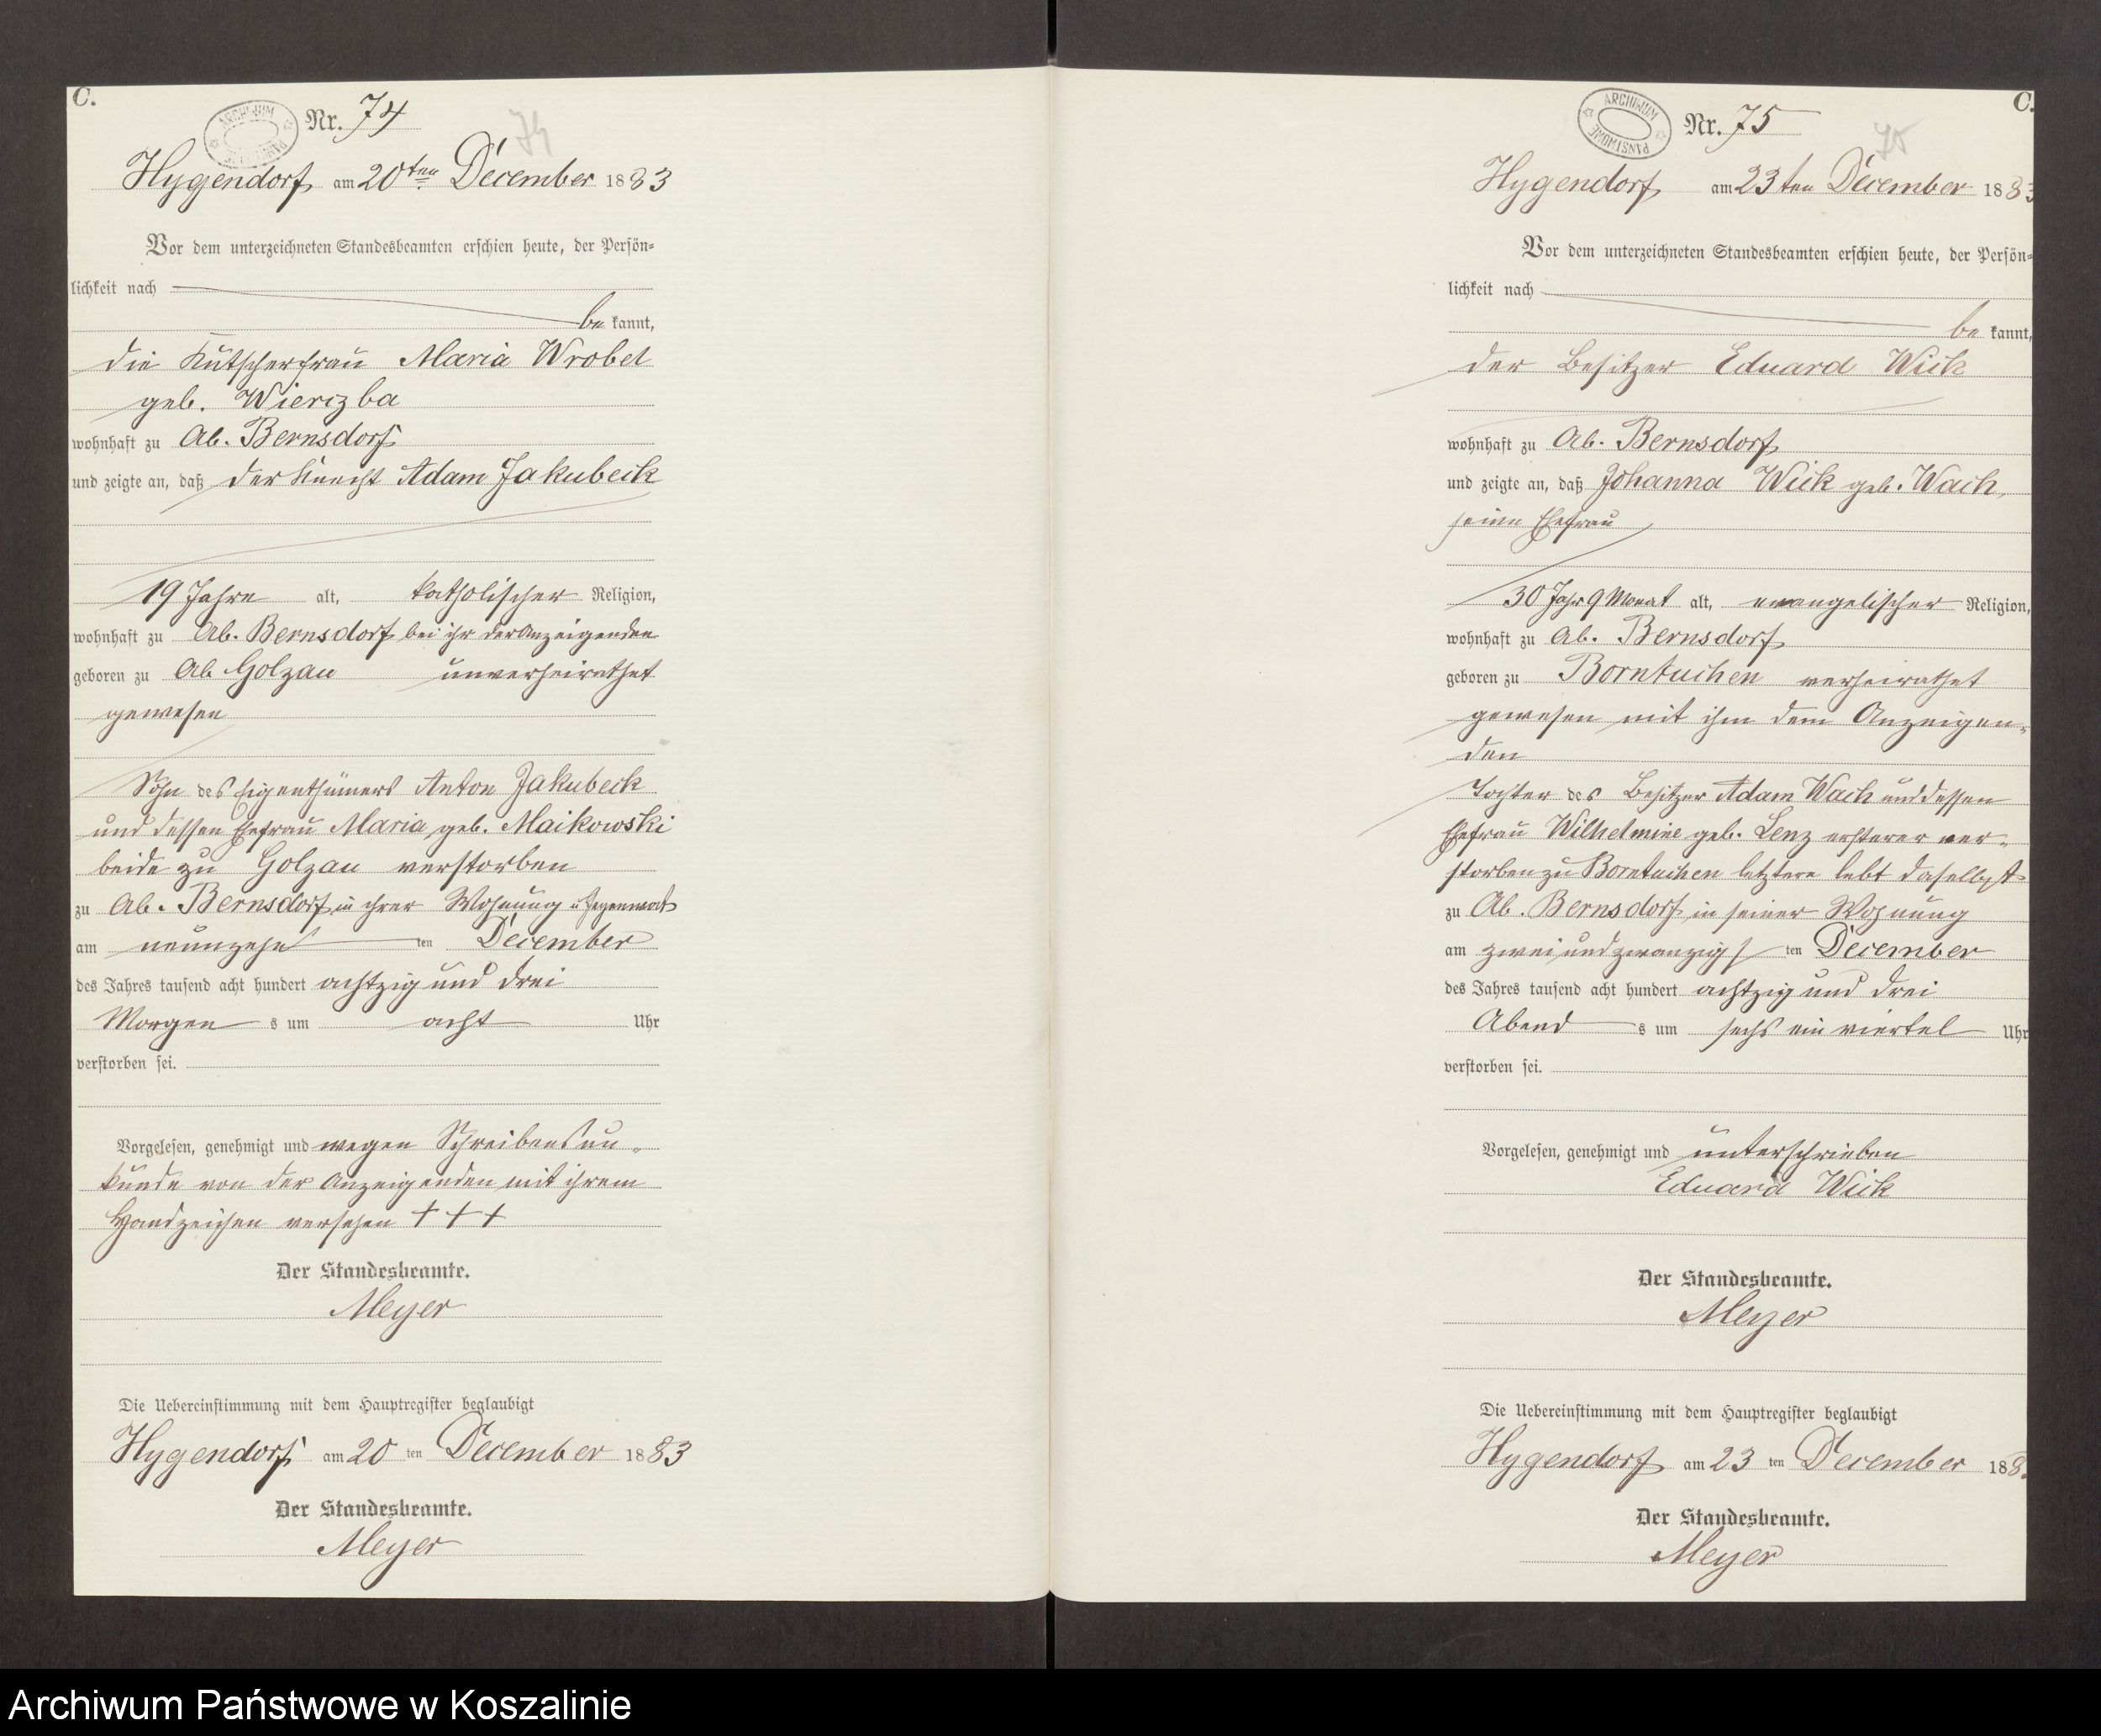 C.
ARCHIWUM PAŃSTWOWE
Nr. 74
74
Hygendorf am 20ten December 1883
Vor dem unterzeichneten Standesbeamten erschien heute, der Persön=
lichkeit nach
be kannt,
die Kutscherfrau Maria Wrobel
geb. Wierczba
wohnhaft zu Ab. Bernsdorf
und zeigte an, daß der Knecht Adam Jakubeck
19 Jahre alt, katholischer Religion,
wohnhaft zu Ab. Bernsdorf bei ihr der Anzeigenden
geboren zu Ab Golzau unverheirathet
gewesen
Sohn des Eigenthümers Anton Jakubeck
und dessen Ehefrau Maria geb. Maikowski
beide zu Golzau verstorben
zu Ab. Bernsdorf in ihrer Wohnung u Gegenwart
am neunzehn ten December
des Jahres tausend acht hundert achtzig und drei
Morgen s um acht Uhr
verstorben sei.
Vorgelesen, genehmigt und wegen Schreibensun-
kunde von der Anzeigenden mit ihrem
Handzeichen versehen + + +
Der Standesbeamte.
Meyer
Die Uebereinstimmung mit dem Hauptregister beglaubigt
Hygendorf am 20 ten December 1883
Der Standesbeamte.
Meyer
C.
ARCHIWUM PAŃSTWOWE
Nr. 75
75
Hygendorf am 23ten December 1883
Vor dem unterzeichneten Standesbeamten erschien heute, der Persön=
lichkeit nach
be kannt,
der Besitzer Eduard Wick
wohnhaft zu Ab. Bernsdorf
und zeigte an, daß Johanna Wick geb. Wach,
seine Ehefrau
30 Jahr 9 Monat alt, evangelischer Religion,
wohnhaft zu Ab. Bernsdorf
geboren zu Borntuchen verheirathet
gewesen mit ihm dem Anzeigen-
den
Tochter des Besitzer Adam Wach und dessen
Ehefrau Wilhelmine geb. Lenz ersterer ver-
storben zu Borntuchen letztere lebt daselbst
zu Ab. Bernsdorf in seiner Wohnung
am zwei und zwanzigs ten December
des Jahres tausend acht hundert achtzig und drei
Abend s um sechs ein viertel Uhr
verstorben sei.
Vorgelesen, genehmigt und unterschrieben
Eduard Wick
Der Standesbeamte.
Meyer
Die Uebereinstimmung mit dem Hauptregister beglaubigt
Hygendorf am 23 ten December 188
Der Standesbeamte.
Meyer
Archiwum Państwowe w Koszalinie